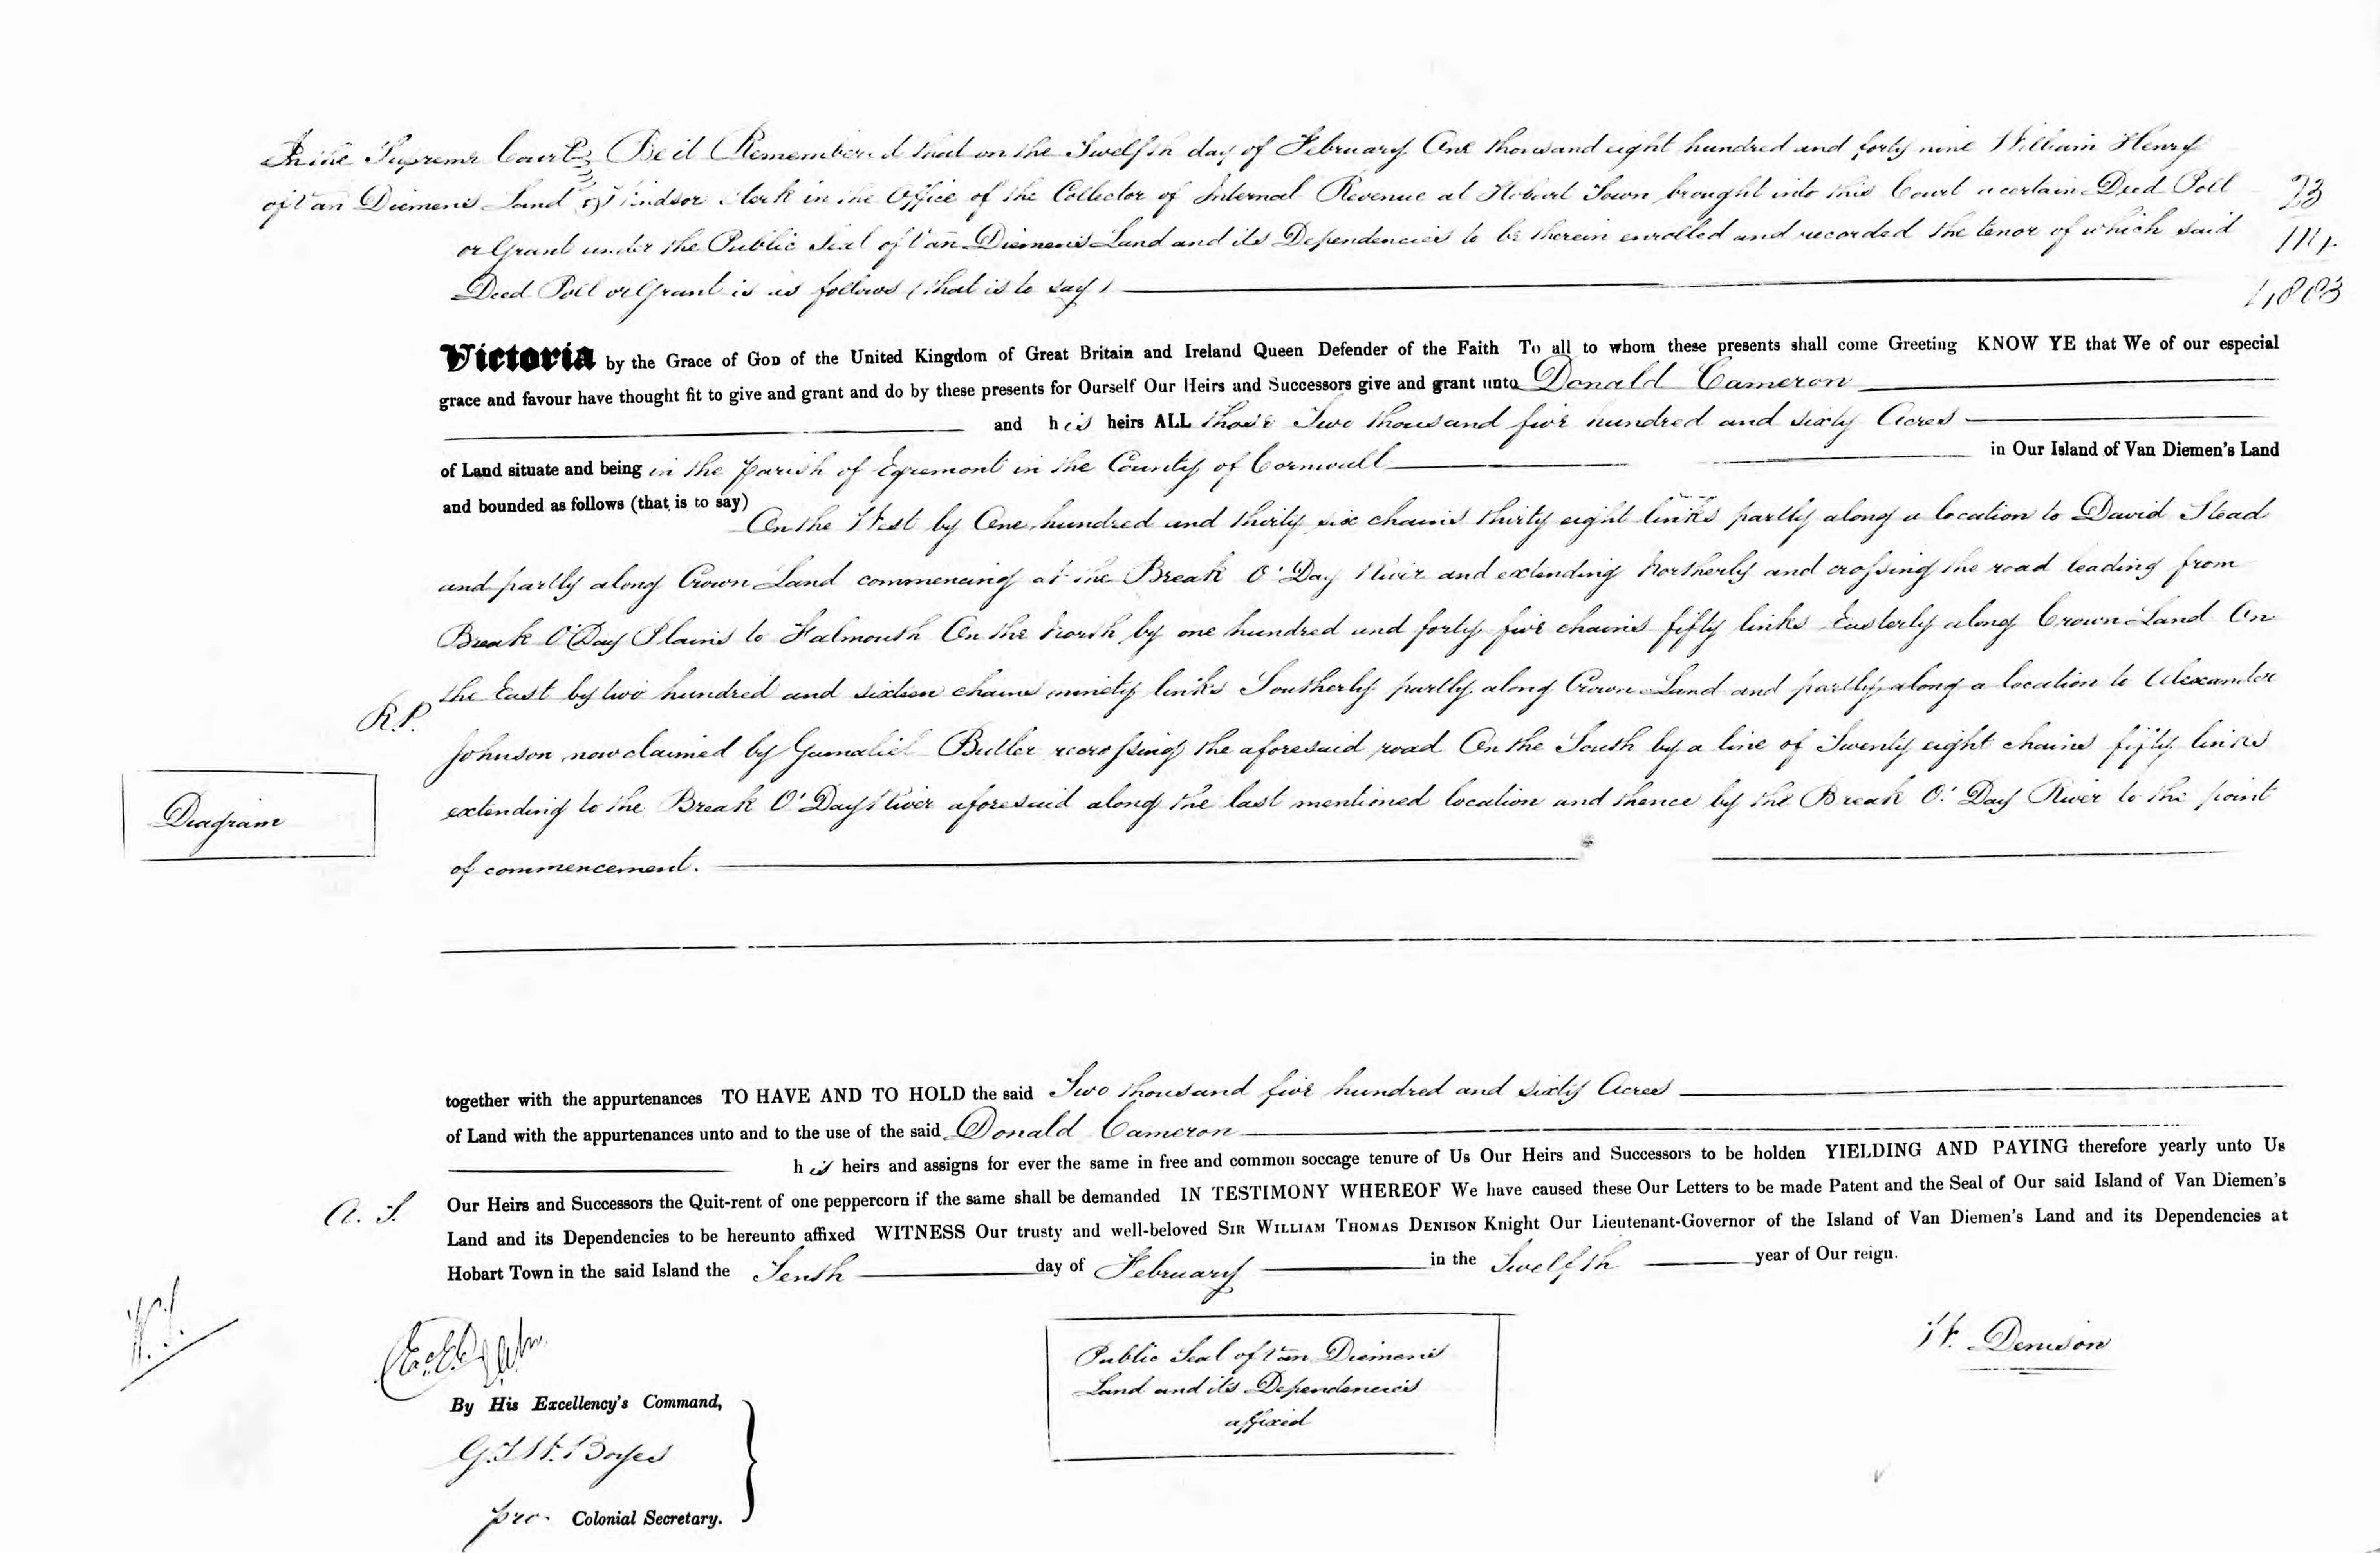 In the Supreme Court Be it Remembered that on the Twelfth day of February One thousand eight hundred and forty nine William Henry
of Van Diemen's Land Windsor Clerk in the Office of the Collector of Internal Revenue at Hobart Town brought into this Court a certain Deed Poll
23
or Grant under the Public Seal of Van Diemen's Land and its Dependencies to be therein enrolled and recorded the tenor of which said
Deed Poll or Grant is as follows (that is to say)
Victoria by the Grace of God of the United Kingdom of Great Britain and Ireland Queen Defender of the Faith To all to whom these presents shall come Greeting KNOW YE that We of our especial
grace and favour have thought fit to give and grant and do by these presents for Ourself Our Heirs and Successors give and grant unto Donald Cameron
and his heirs ALL those Two thousand five hundred and sixty Acres
of Land situate and being in the parish of Egremont in the County of Cornwall in Our Island of Van Diemen's Land
and bounded as follows (that is to say) On the West by One hundred and thirty six chains thirty eight links partly along a location to David Stead
and partly along Crown Land commencing at the Break O' Day River and extending Northerly and crossing the road leading from
Break O'Day Plains to Falmouth On the North by one hundred and forty five chains fifty links Easterly along Crown Land On
the East by two hundred and sixteen chains ninety links Southerly partly along Crown Land and partly along a location to Alexander
R.P.
Johnson now claimed by Gamaliel Butler recrossing the aforesaid road On the South by a line of Twenty eight chains fifty links
extending to the Break O' Day River aforesaid along the last mentioned location and thence by the Break O' Day River to the point
Diagram
of commencement.
together with the appurtenances TO HAVE AND TO HOLD the said Two thousand five hundred and sixty Acres
of Land with the appurtenances unto and to the use of the said Donald Cameron
his heirs and assigns for ever the same in free and common soccage tenure of Us Our Heirs and Successors to be holden YIELDING AND PAYING therefore yearly unto Us
A. S. Our Heirs and Successors the Quit-rent of one peppercorn if the same shall be demanded IN TESTIMONY WHEREOF We have caused these Our Letters to be made Patent and the Seal of Our said Island of Van Diemen's
Land and its Dependencies to be hereunto affixed WITNESS Our trusty and well-beloved SIR WILLIAM THOMAS DENISON Knight Our Lieutenant-Governor of the Island of Van Diemen's Land and its Dependencies at
Hobart Town in the said Island the Tenth day of February in the Twelfth year of Our reign.
W. Denison
Public Seal of Van Diemen's
Land and its Dependencies
affixed
By His Excellency's Command,
G.T.W.B. Boyes
pro. Colonial Secretary.